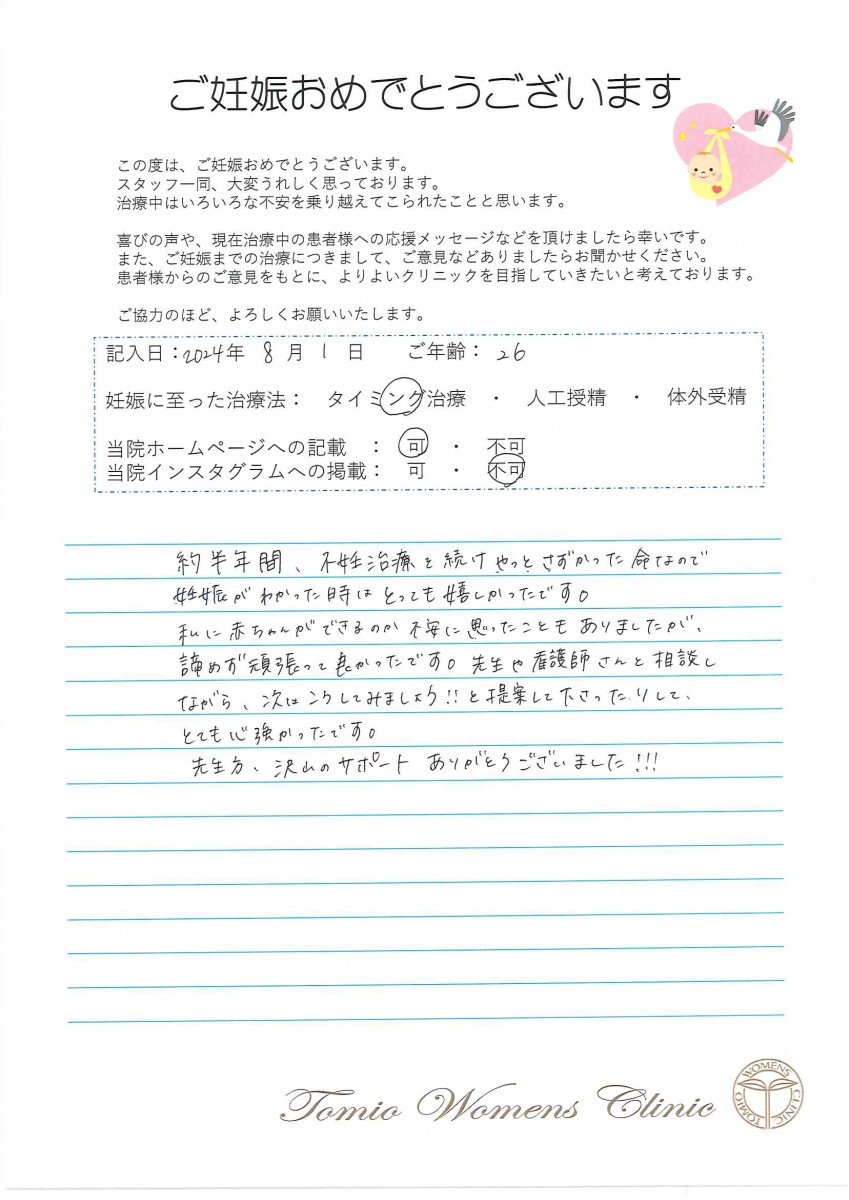 ご妊娠おめでとうございます
この度は、ご妊娠おめでとうございます。
スタッフ一同、大変うれしく思っております。
治療中はいろいろな不安を乗り越えてこられたことと思います。
喜びの声や、現在治療中の患者様への応援メッセージなどを頂けましたら幸いです。
また、ご妊娠までの治療につきまして、ご意見などありましたらお聞かせください。
患者様からのご意見をもとに、よりよいクリニックを目指していきたいと考えております。
ご協力のほど、よろしくお願いいたします。
記入日：2024年 8月 1日 ご年齢： 26
妊娠に至った治療法： タイミング治療 ・ 人工授精 ・ 体外受精
当院ホームページへの記載 ： 可 ・ 不可
当院インスタグラムへの掲載： 可 ・ 不可
約半年間、不妊治療を続けやっとさずかった命なので
妊娠がわかった時はとっても嬉しかったです。
私に赤ちゃんができるのか不安に思ったこともありましたが、
諦めず頑張って良かったです。先生や看護師さんと相談し
ながら、次はこうしてみましょう!!と提案して下さったりして、
とても心強かったです。
先生方、沢山のサポートありがとうございました!!!
Tomio Womens Clinic
TOMIO WOMENS CLINIC